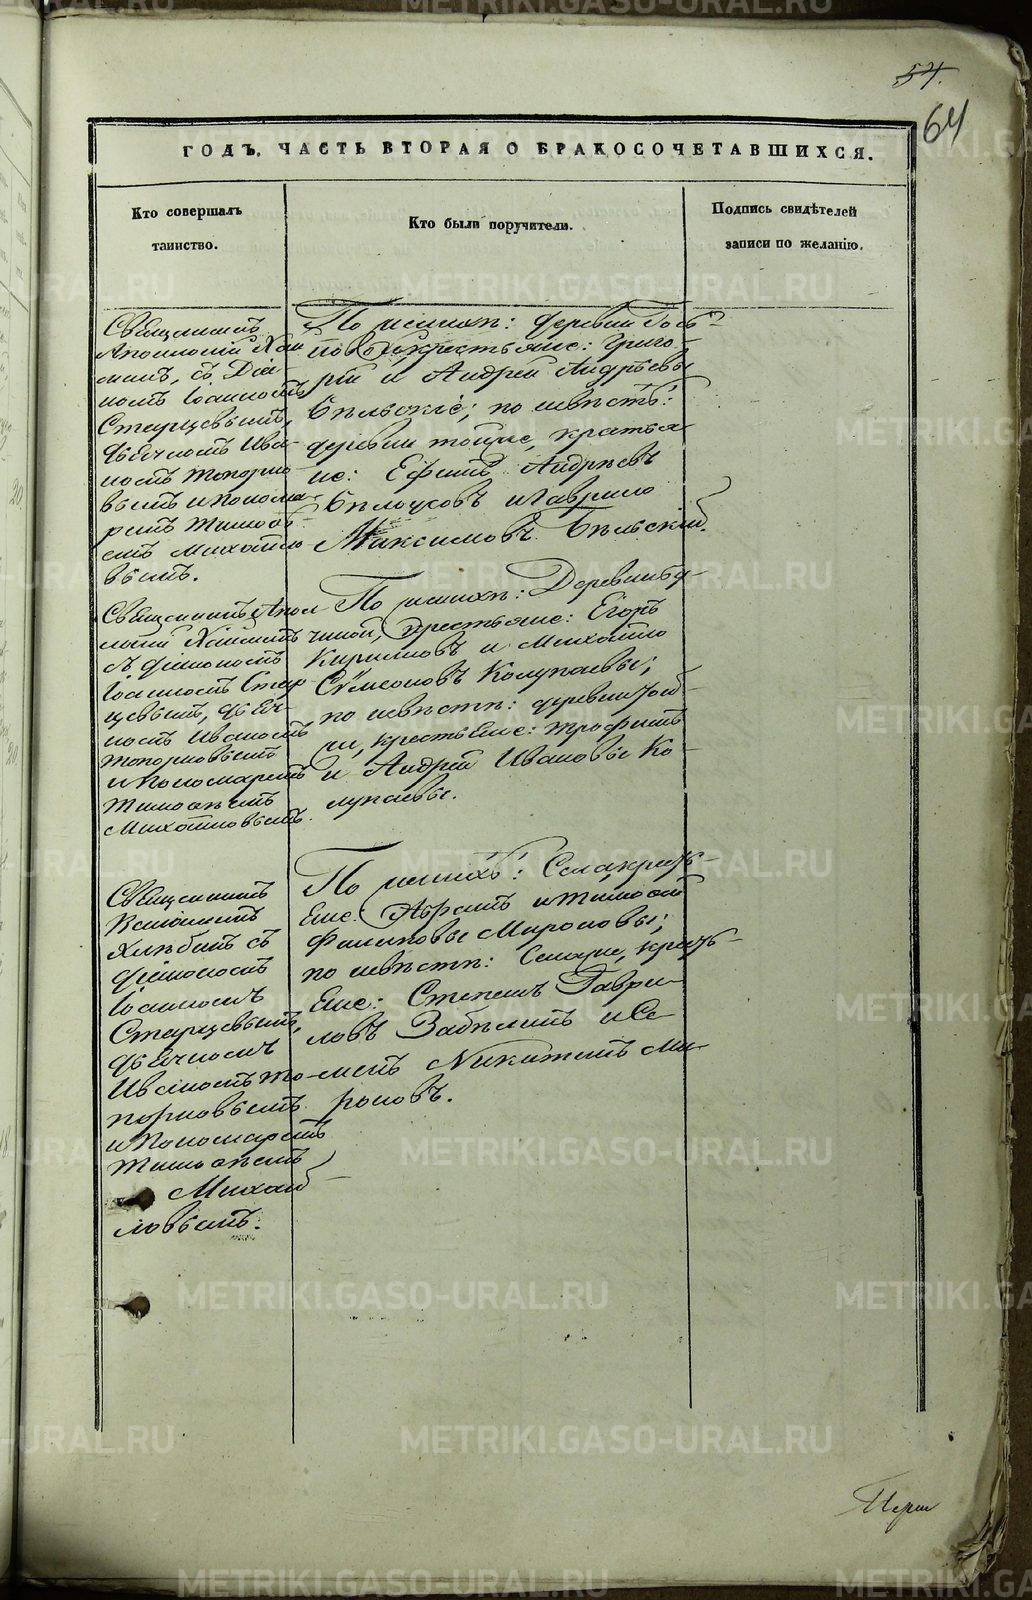 54.
64
ГОДЪ, ЧАСТЬ ВТОРАЯ О БРАКОСОЧЕТАВШИХСЯ.
Кто совершалъ
таинство.
Кто были поручители.
Подпись свидѣтелей
записи по желанію.
Священникъ
съ Діа-
кономъ Іоанномъ
Старцевымъ,
дьячкомъ Ива-
номъ Топорко-
вымъ и понома-
ремъ Тимоѳе-
емъ Михайло-
вымъ.
По женихѣ: деревни
крестьяне: Григо-
рій и Андрей Андрѣевы
Бѣльскіе; по невѣстѣ:
деревни тойже, крестья-
не: Ефимъ Андрѣевъ
Бѣлоусовъ и Гаврило
Максимовъ Бѣльскій.
Священникъ Апол-
съ діакономъ
Іоанномъ Стар-
цевымъ, дьяч-
комъ Иваномъ
Топорковымъ
и пономаремъ
Тимоѳеемъ
Михайловымъ.
По женихѣ: Деревни
крестьяне: Егоръ
Кириловъ и Михайло
Сѵмеоновъ Колупаевы;
по невѣстѣ: деревни
крестьяне: Трофимъ
и Андрей Ивановы Ко-
лупаевы.
Священникъ
Веніаминъ
Хлѣбинъ съ
діакономъ
Іоанномъ
Старцевымъ,
дьячкомъ
Иваномъ То-
порковымъ
и пономаремъ
Тимоѳеемъ
Михай-
ловымъ.
По женихѣ: Села крестья-
не: Абрамъ и Тимоѳей
Филиповы Мироновы;
по невѣстѣ: Села же, кресть-
яне: Степанъ Гаври-
ловъ Забѣлинъ и Се-
менъ Никитинъ Ми-
роновъ.
METRIKI.GASO-URAL.RU